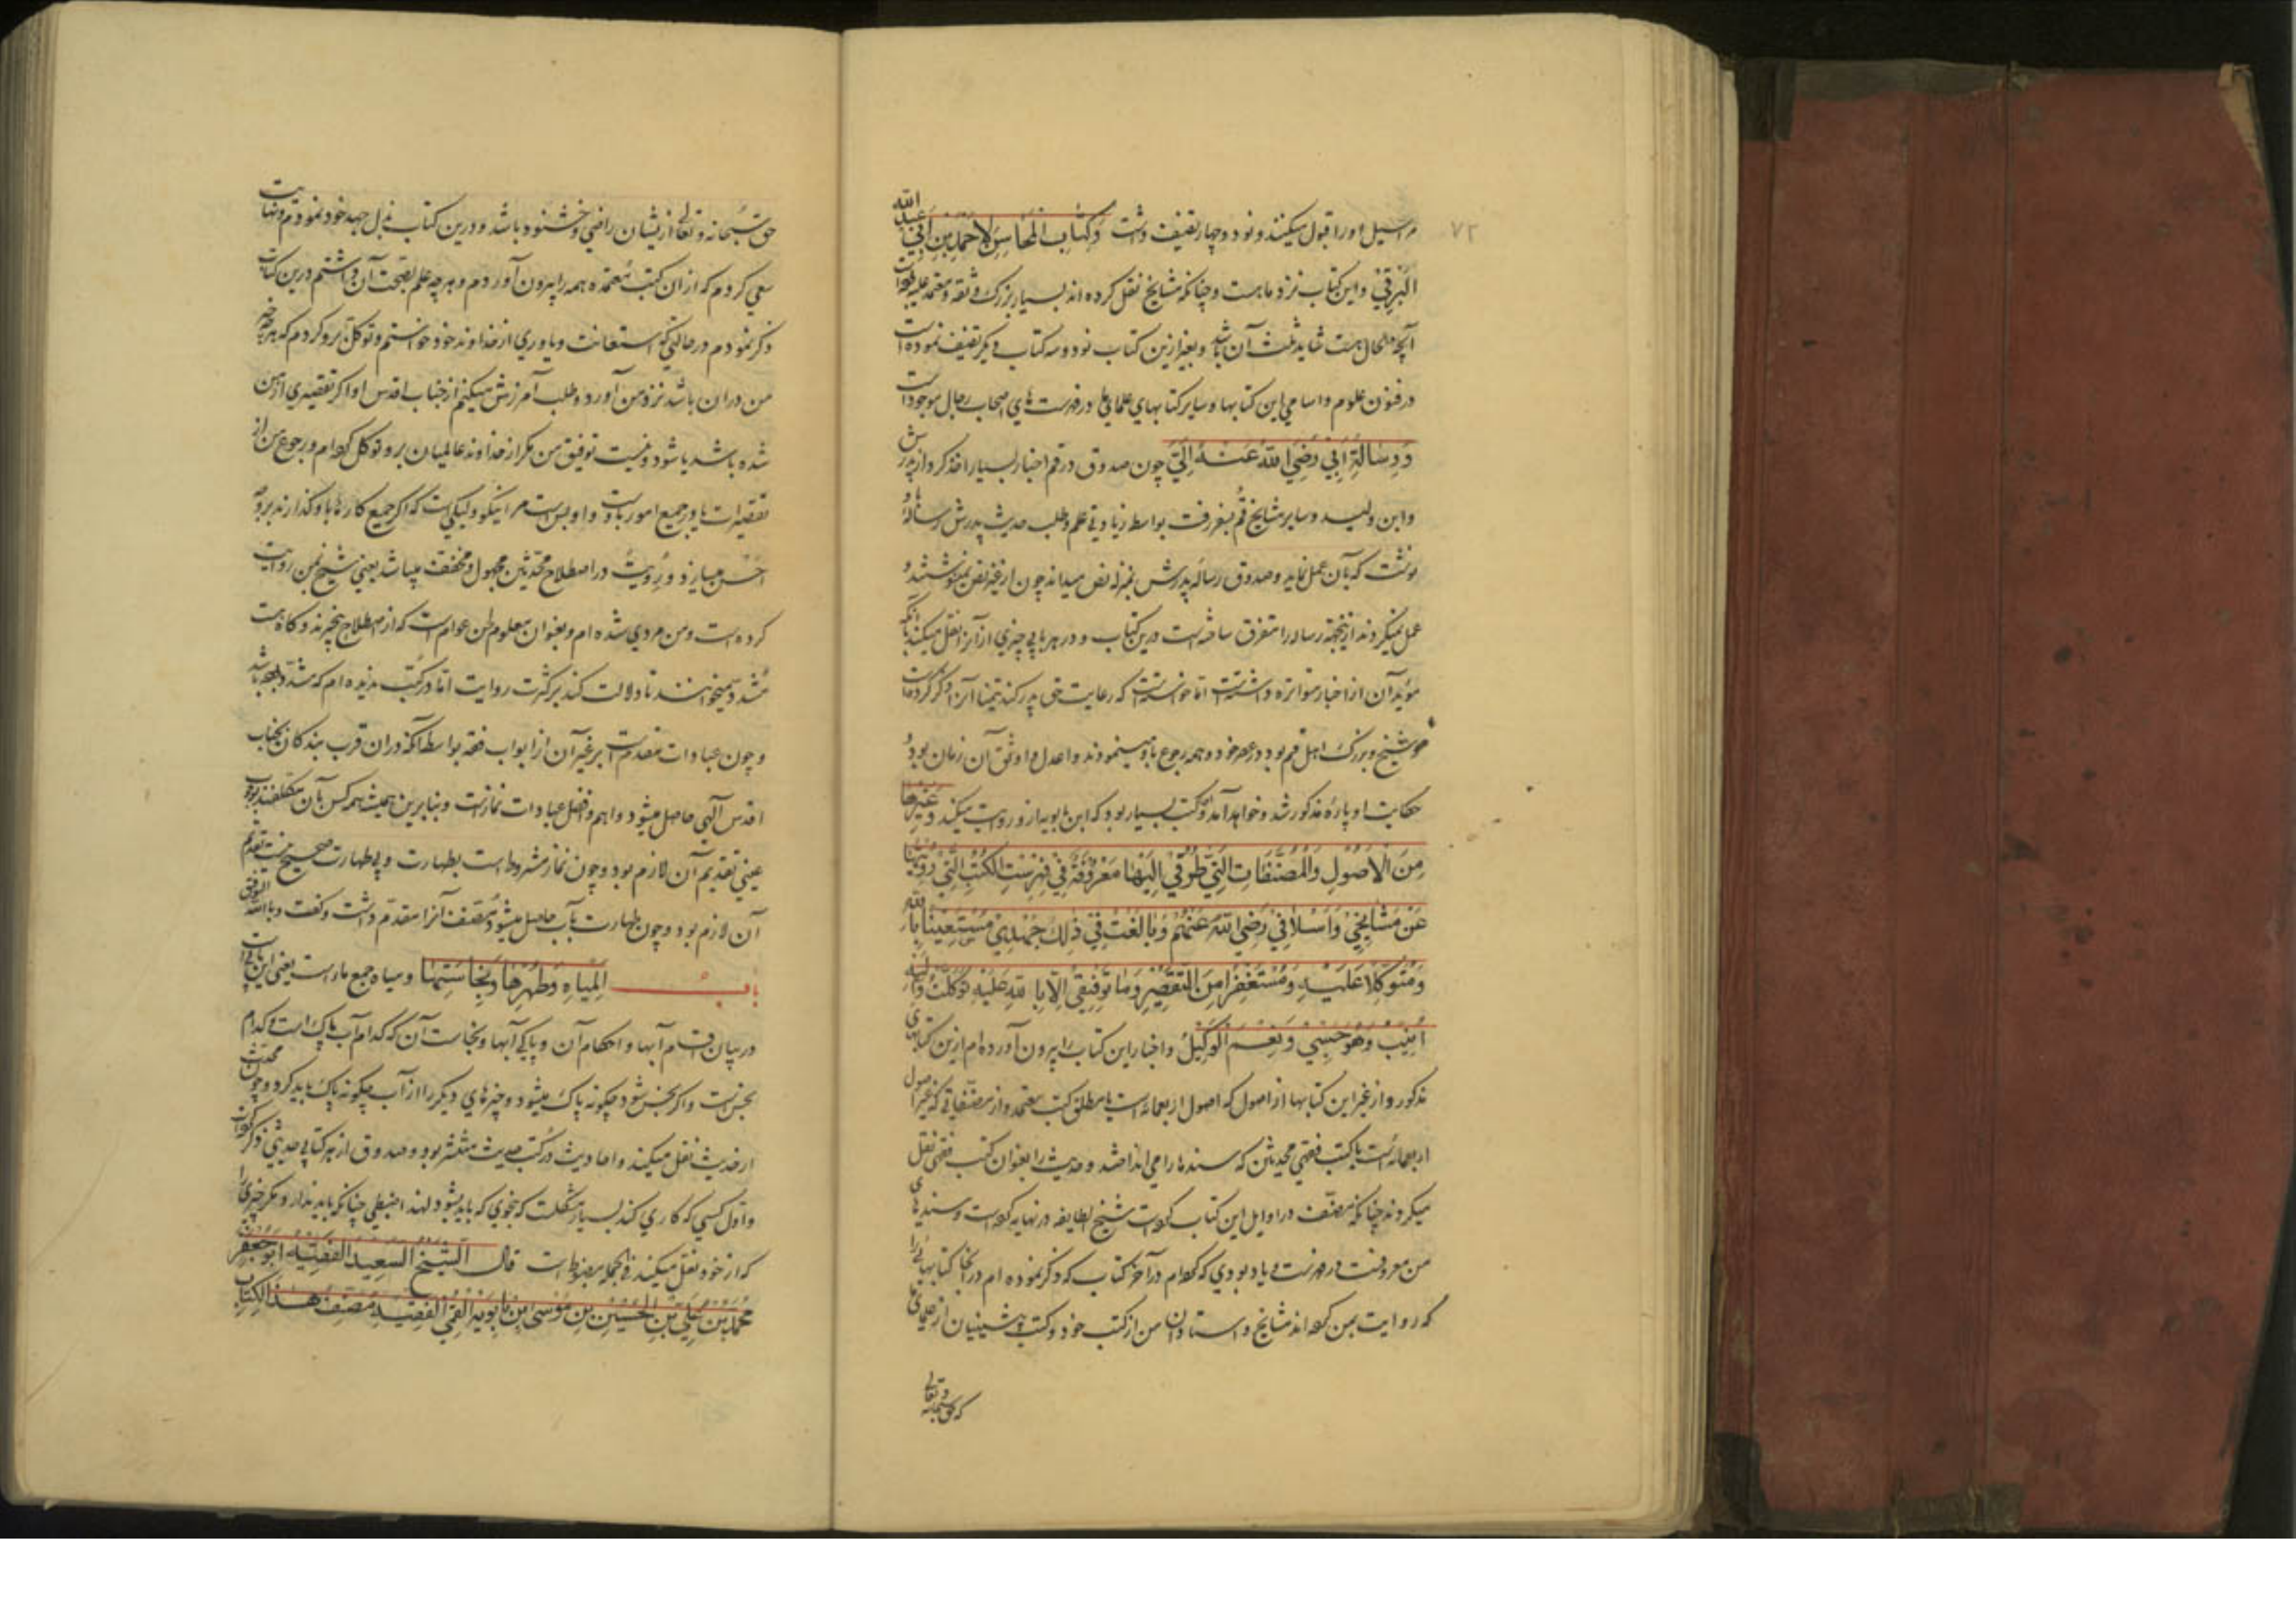 ۷۲
مراسیل او را قبول میکنند و نود و چهار تصنیف داشت وَكِتَابِ الْمَحَاسِنِ لِأَحْمَدَ بْنِ أَبِي عَبْدِ اللهِ
الْبَرْقِيِّ و این کتاب نزد ما هست و چنانکه مشایخ نقل کرده اند بسیار بزرگ و ثقه و معتمد علیه
آنچه الحال هست شاید ثلث آن باشد و بغیر ازین کتاب نود و سه کتاب دیگر تصنیف نموده است
در فنون علوم و اسامی این کتابها و سایر کتابهای علمای ما در فهرست های اصحاب رجال موجود است
وَرِسَالَةِ أَبِي رَضِيَ اللهُ عَنْهُ إِلَيَّ چون صدوق در قم اخبار بسیار اخذ کرد از پدرش
و ابن ولید و سایر مشایخ قم بسفر رفت بواسطه زیادتی علم و طلب حدیث پدرش رساله
نوشت که بآن عمل نماید و صدوق رساله پدرش بمنزله نص میداند چون از غیر نص نمینوشتند و
عمل نمیکردند ازینجهة رساله را متفرق ساخته است درین کتاب و در هر بابی چیزی از آنرا نقل میکند با آنکه
مؤید آن از اخبار متواتره داشته است اما خواسته است که رعایت حق پدر کند تیمنا آنرا ذکر کرده است
و شیخ و بزرگ اهل قم بود در عصر خود و همه رجوع باو مینمودند و اعدل و اوثق آن زمان بود و
حکایت او پارهٔ مذکور شد و خواهد آمد و کتب بسیار بود که ابن بابویه ازو روایت میکند وَغَيْرِهَا
مِنَ الْأُصُولِ وَالْمُصَنَّفَاتِ الَّتِي طُرُقِي إِلَيْهَا مَعْرُوفَةٌ فِي فِهْرِسْتِ الْكُتُبِ الَّتِي رُوِّيتُهَا
عَنْ مَشَايِخِي وَأَسْلَافِي رَضِيَ اللهُ عَنْهُمْ وَبَالَغْتُ فِي ذٰلِكَ جُهْدِي مُسْتَعِينًا بِاللهِ
وَمُتَوَكِّلًا عَلَيْهِ وَمُسْتَغْفِرًا مِنَ التَّقْصِيرِ وَمَا تَوْفِيقِي إِلَّا بِاللهِ عَلَيْهِ تَوَكَّلْتُ وَإِلَيْهِ
أُنِيبُ وَهُوَ حَسْبِي وَنِعْمَ الْوَكِيلُ و اخبار این کتاب را بیرون آورده ام ازین کتابهای
مذکور و از غیر این کتابها از اصول که اصول اربعمائه است یا مطلق کتب معتمد و از مصنفاتی که غیر اصول
اربعمائه است یا کتب فقهی محدثین که سندها را می انداختند و حدیث را بعنوان کتب فقهی نقل
میکردند چنانکه مصنّف در اوایل این کتاب کرده است و شیخ الطایفه در نهایه کرده است و سندهای
من معروفست در فهرست که در آخر کتاب که ذکر نموده ام در آنجا کتابهائی را
که روایت بمن کرده اند مشایخ و استادان من از کتب خود و کتب پیشینیان از علمای
که حق سبحانه و تعالی
حق سبحانه و تعالی ازیشان راضی و خشنود باشد و درین کتاب بذل جهد خود نمودم و نهایت
سعی کردم که از آن کتب معتمده همه را بیرون آوردم و هر چه علم بصحت آن داشتم درین کتاب
ذکر نمودم در حالتی که استعانت و یاوری از خداوند خود خواستم و توکل برو کردم که هر چه خیر
من در آن باشد نزد من آورد و طلب آمرزش میکنم از جناب اقدس او اگر تقصیری از من
شده باشد یا شود و نیست توفیق من مگر از خداوند عالمیان برو توکل کرده ام و رجوع من از
تقصیرات یا در جمیع امور باوست و او بس است مرا نیکو وکیلی است که اگر جمیع کارها با او گذارند بر وجه
احسن میسازد و رُوِّیتُ در اصطلاح محدثین مجهول و مخفف میباشد یعنی شیخ بمن روایت
کرده است و من مروی شده ام و بعنوان معلوم ظن عوام است که از اصطلاح بیخبرند و گاه هست
مشدد میخوانند تا دلالت کند بر کثرت روایت اما در کتب ندیده ام که مشدد باشد
و چون عبادات مقدمست بر غیر آن از ابواب فقه بواسطه آنکه در آن قرب بندگان بجناب
اقدس آلهی حاصل میشود و اهم و افضل عبادات نمازست و بنابرین همیشه همه کس بآن مکلفند بوجوب
عینی تقدیم آن لازم بود و چون نماز مشروط است بطهارت و بی طهارت صحیح نیست تقدیم
آن لازم بود و چون طهارت بآب حاصل میشود مصنف آنرا مقدم داشت و گفت وبالله التوفیق
بَابُ الْمِيَاهِ وَطُهْرِهَا وَنَجَاسَتِهَا و میاه جمع ماء است یعنی این بابیست
در بیان اقسام آبها و احکام آن و پاکی آبها و نجاست آن که کدام آب پاک است و کدام
نجس است و اگر نجس شود چگونه پاک میشود و چیزهای دیگر را از آب چگونه پاک باید کرد و چون محدثین
از حدیث نقل میکنند و احادیث در کتب حدیث منتشر بود و صدوق از هر کتابی حدیثی ذکر کرده است
و اول کسی که کاری کند بسیار مشکلست که بنحوی که باید بشود لهذا ضبطی چنانکه باید ندارد مگر چیزی را
که از خود نقل میکند فی الجمله مربوط است قَالَ الشَّيْخُ السَّعِيدُ الْفَقِيهُ أَبُو جَعْفَرٍ
مُحَمَّدُ بْنُ عَلِيِّ بْنِ الْحُسَيْنِ بْنِ مُوسَى بْنِ بَابَوَيْهِ الْقُمِّيُّ الْفَقِيهُ مُصَنِّفُ هٰذَا الْكِتَابِ